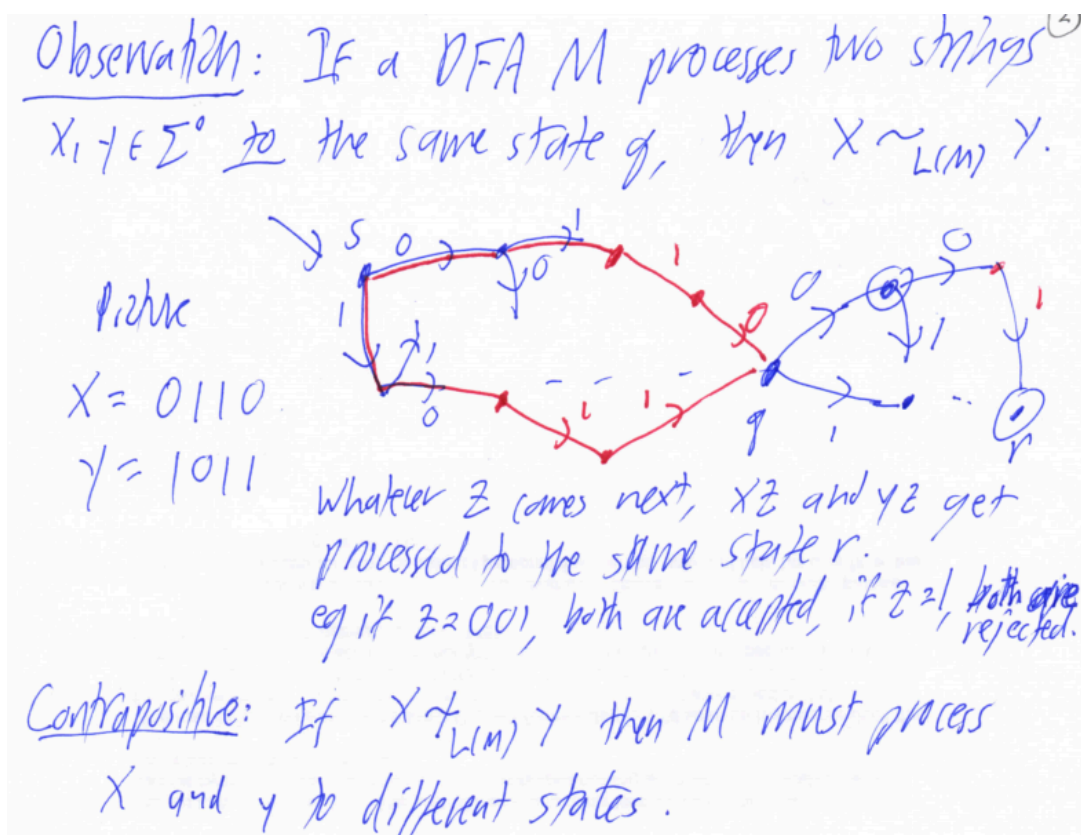 (2)
Observation: If a DFA M processes two strings
X, y ∈ Σ* to the same state q, then X ~L(M) Y.
S 0 1 1 0 0
0 1
Picture 1 1 0 1
X = 0110 0 1 1 q 1 r
Y = 1011
Whatever z comes next, xz and yz get
processed to the same state r.
eg if z=001, both are accepted, if z=1, both are
rejected.
Contrapositive: If X ≁L(M) Y then M must process
X and y to different states.